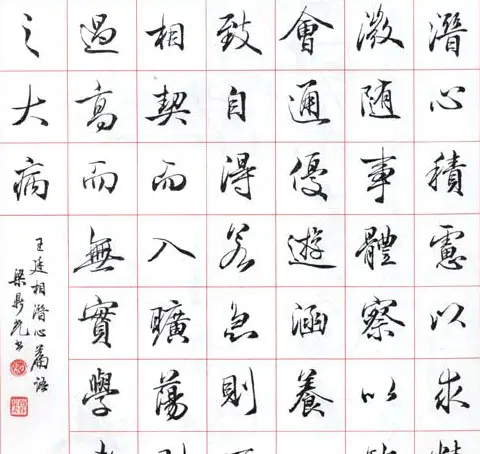 潛心積慮以求
微随事體察以
會通優遊涵養
致自得若急則
相契而入曠蕩
過高而無實學
之大病
王廷相潛心篇語
梁鼎光書